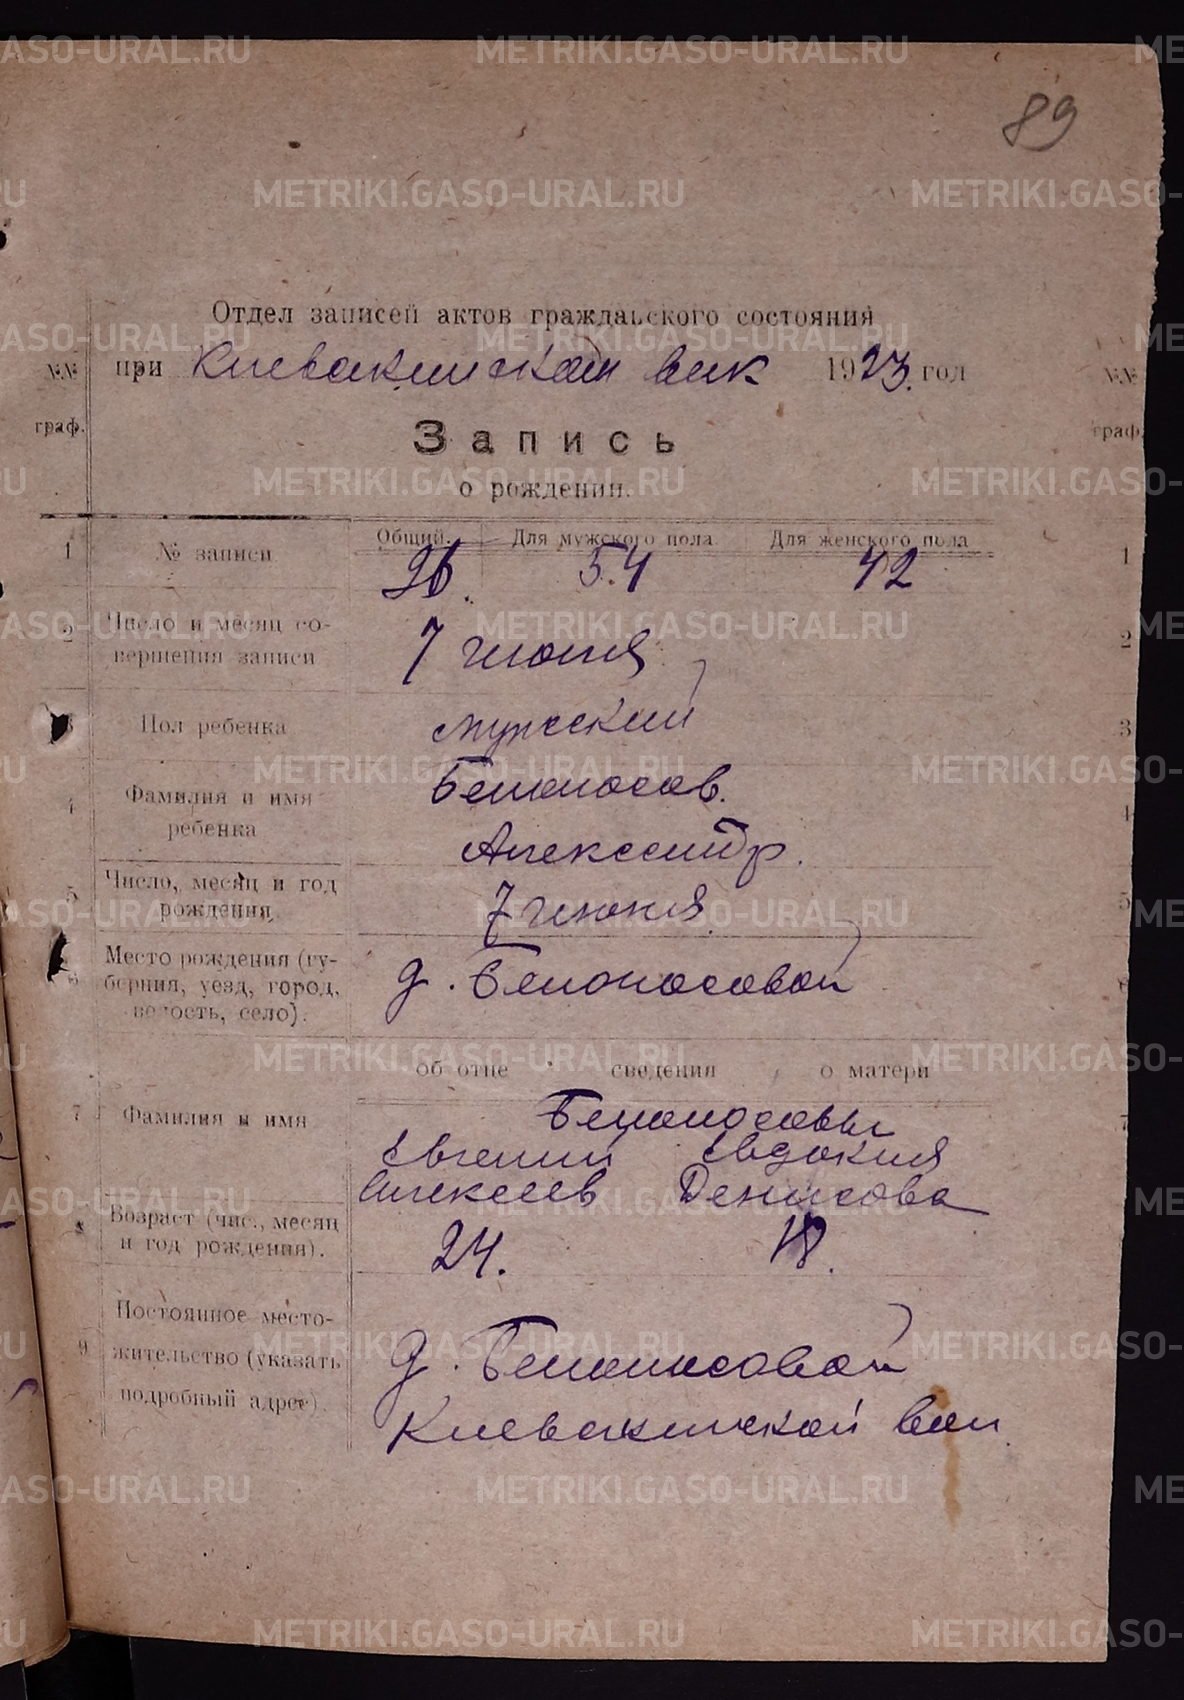 89
Отдел записей актов гражданского состояния
при Клевакинском вик 1923. год
№№ граф.
Запись
о рождении.
Общий. Для мужского пола Для женского пола
1 № записи 96. 54 42
2 Число и месяц совершения записи 7 июня
3 Пол ребенка мужский
4 Фамилия и имя ребенка Белоносов.
Александр.
5 Число, месяц и год рождения. 7 июня
6 Место рождения (губерния, уезд, город, волость, село). д. Белоносовой
об отце сведения о матери
7 Фамилия и имя Белоносовы
Евгений Евдокия
Алексеев Денисова
8 Возраст (чис., месяц и год рождения). 24. 18.
9 Постоянное местожительство (указать подробный адрес). д. Белоносовой
Клевакинской вол.
METRIKI.GASO-URAL.RU